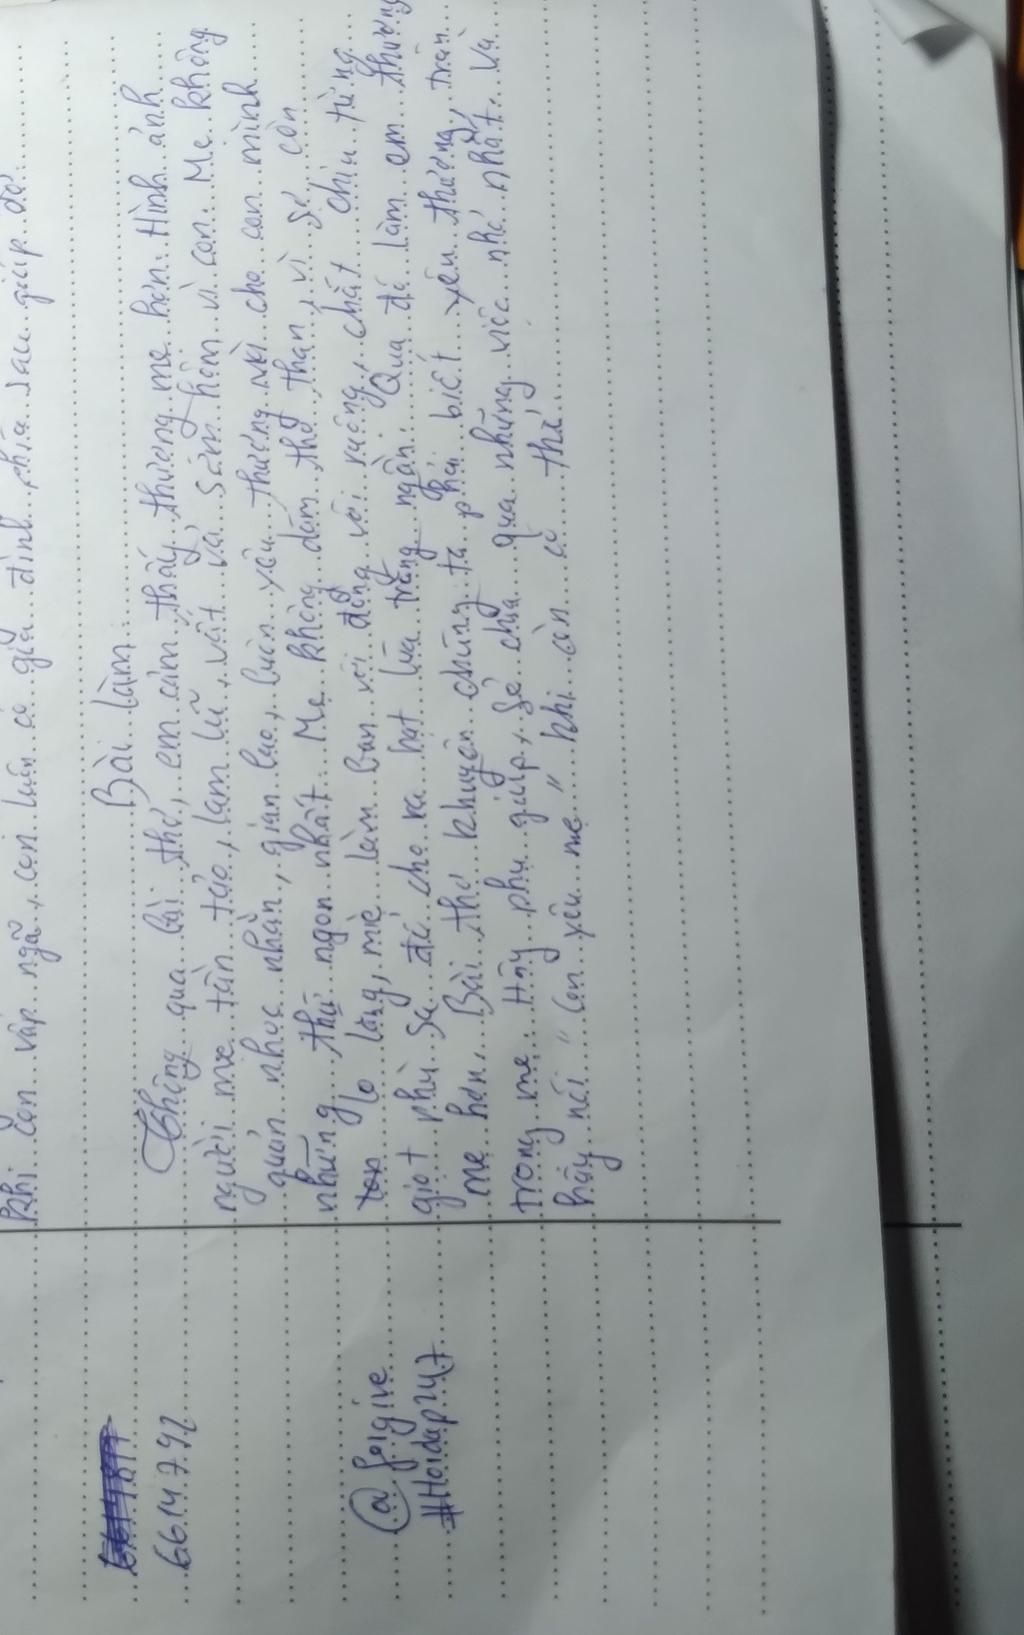 khi con vấp ngã, con luôn có gia đình phía sau giúp đỡ.
Bài làm
6614792
Thông qua bài thơ, em cảm thấy thương mẹ hơn. Hình ảnh
người mẹ tần tảo, lam lũ, vất vả sớm hôm vì con. Mẹ không
quản nhọc nhằn, gian lao, luôn yêu thương cho con mình
những thứ ngon nhất. Mẹ không dám thở than, vì sợ còn
lo lắng, mẹ làm bạn với đồng với ruộng, chắt chiu từng
@forgive
giọt phù sa để cho ra hạt lúa trắng ngần. Qua đó làm em thương
#Hoidap247
mẹ hơn. Bài thơ khuyên chúng ta phải biết yêu thương, trân
trọng mẹ. Hãy phụ giúp, sẻ chia qua những việc nhỏ nhất. Và
hãy nói "Con yêu mẹ" khi còn có thể.